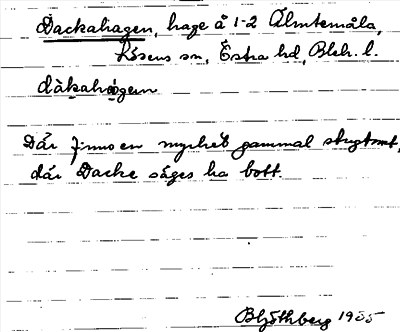 Dackahagen, hage å 1-2 Älmtemåla,
Lösens sn, Östra hd, Blek. l.
dàkahágen
Där finns en mycket gammal stugtomt,
där Dacke säges ha bott.
1935